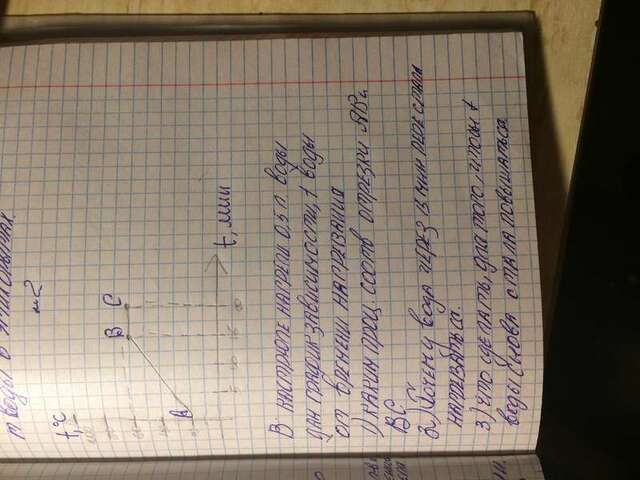 t воды в этих опытах.
№2
t,°C
100
80
60
40
20
A
B
C
5
10
15
20
t, мин
В кастрюле нагрели 0,5 л воды
дан график зависимости, t воды
от времени нагревания
1) каким проц. соотв отрезки AB и
BC.
2) Почему вода через 15 мин перестала
нагреваться.
3) что сделать, для того, чтобы t
воды снова стала повышаться.